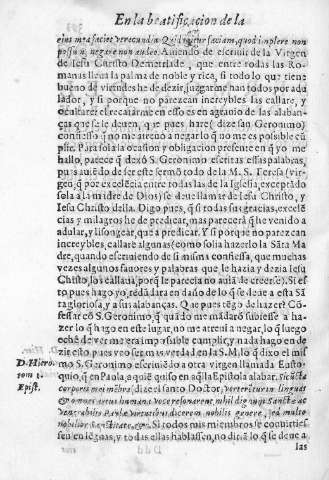 En la beatificacion de la
negare non audeo. Auiendo de escriuir de la Virgen
de Iesu Christo Demetriade, que entre todas las Romanas
lleua la palma de noble y rica, si todo lo que tiene
bueno de virtudes he de dezir, juzgarme han todos por adu
lador, y si porque no parezcan increybles las callare, y
ocultare; el recatarme en esso es en agrauio de las alabanças
que se le deuen, que pues hare (dize san Geronimo)
confiesso q̃ no me atreuo a negar lo q̃ no me es possible cũ
plir. Para sola la ocasion y obligacion presente en q̃ yo me
hallo, parece q̃ dexó S. Geronimo escritas essas palabras,
pues auiẽdo de ser este sermõ todo de la M. S. Teresa (virgen,
q̃ por excelẽcia entre todas las de la Iglesia, exceptãdo
sola a la madre de Dios) se deue llamar de Iesu Christo, y
Iesu Christo della. Digo pues, q̃ si todas sus gracias, excelẽ
cias y milagros he de predicar, mas parecerá q̃ he venido a
adular, y lisongear, que a predicar. Y si porque no parezcan
increybles, callare algunas (como solia hazerlo la Sãta Ma
dre, quando escriuiendo de si misma confiessa, que muchas
vezes algunos fauores y palabras que le hazia y dezia Iesu
Christo, los callaua, porq̃ le parecia no auiã de creerse). Si es
to pues hago yo, redũdara en daño de lo q̃ se deue a esta Sã
ta gloriosa, y a sus alabanças. Que pues tẽgo de hazer? Cõ
fessar cõ S. Geronimo, q̃ quãdo me mãdarõ subiesse a hazer
lo q̃ hago en este lugar, no me atreui a negar, lo q̃ luego
eché de ver me era impossible cumplir, y nada hago en de
zir esto, pues veo ser mas verdad en la S. M. lo q̃ dixo el mis
mo S. Geronimo escriuiẽdo a otra virgen llamada Eusto-
D. Hiero.
quio, q̃ en Paula, a quiẽ quiso en aq̃lla Epistola alabar. Si cũcta
tom 1.
corporis mei mẽbra, dize el santo Doctor, verterẽtur in linguas
Epist.
nobilior Sanctitate, &c. Si todos mis miembros se conuirties
sen en lẽguas, y todas ellas hablassen, no diriã lo q̃ se deue a
las